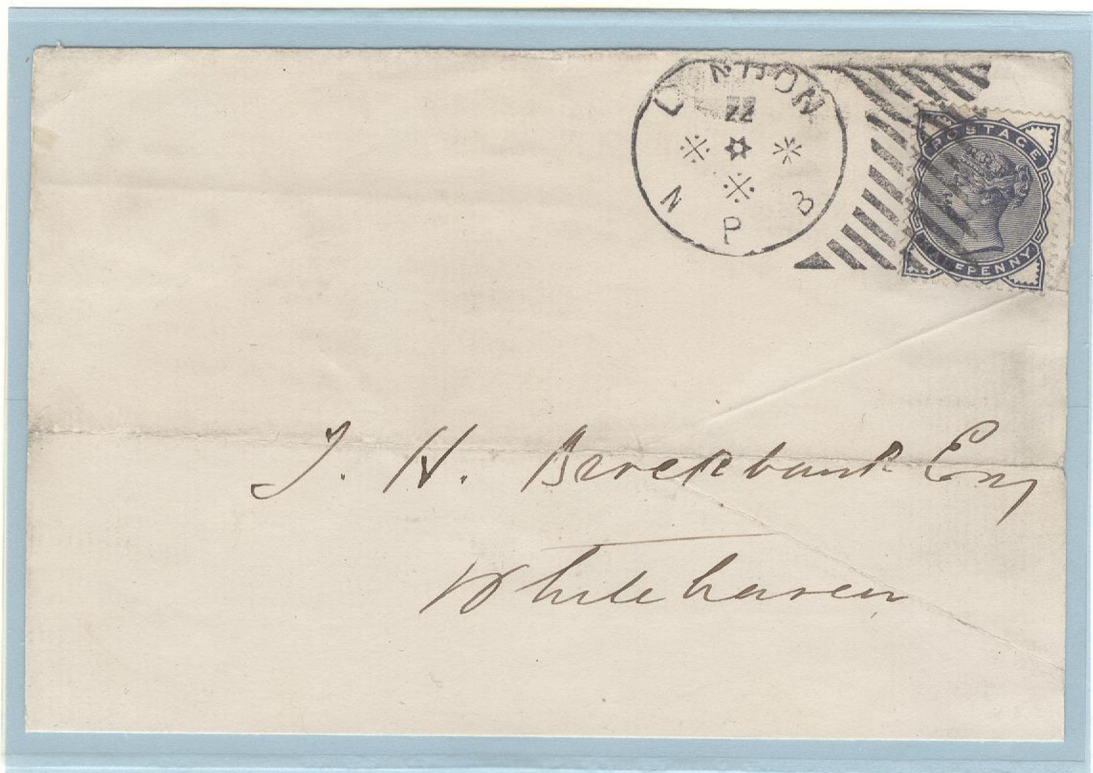 LONDON
ZZ
N P B
POSTAGE
HALFPENNY
J. H. Brockbank Esq
Whitehaven